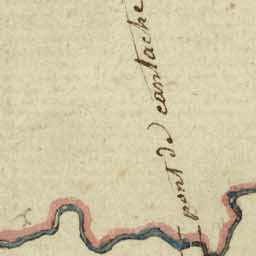 pont de cantache